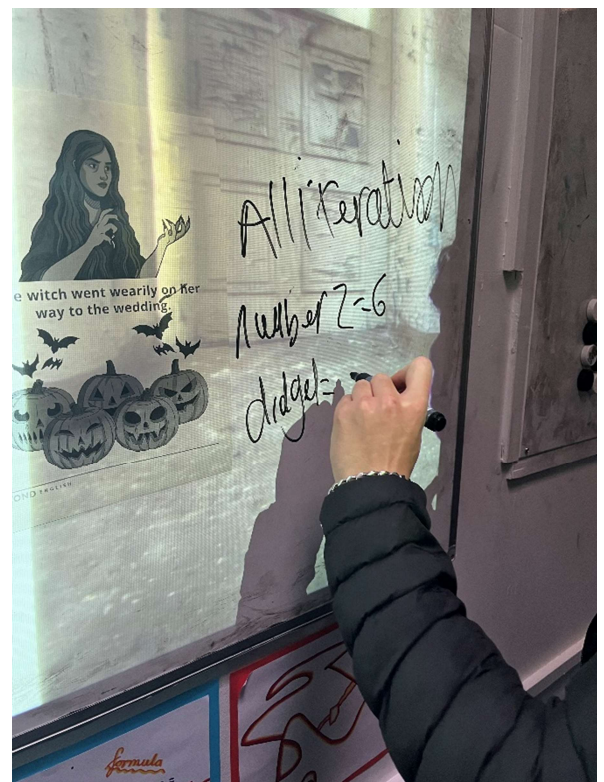 e witch went wearily on her
way to the wedding.
OND ENGLISH
Alliteration
number 2=6
didget=
formula